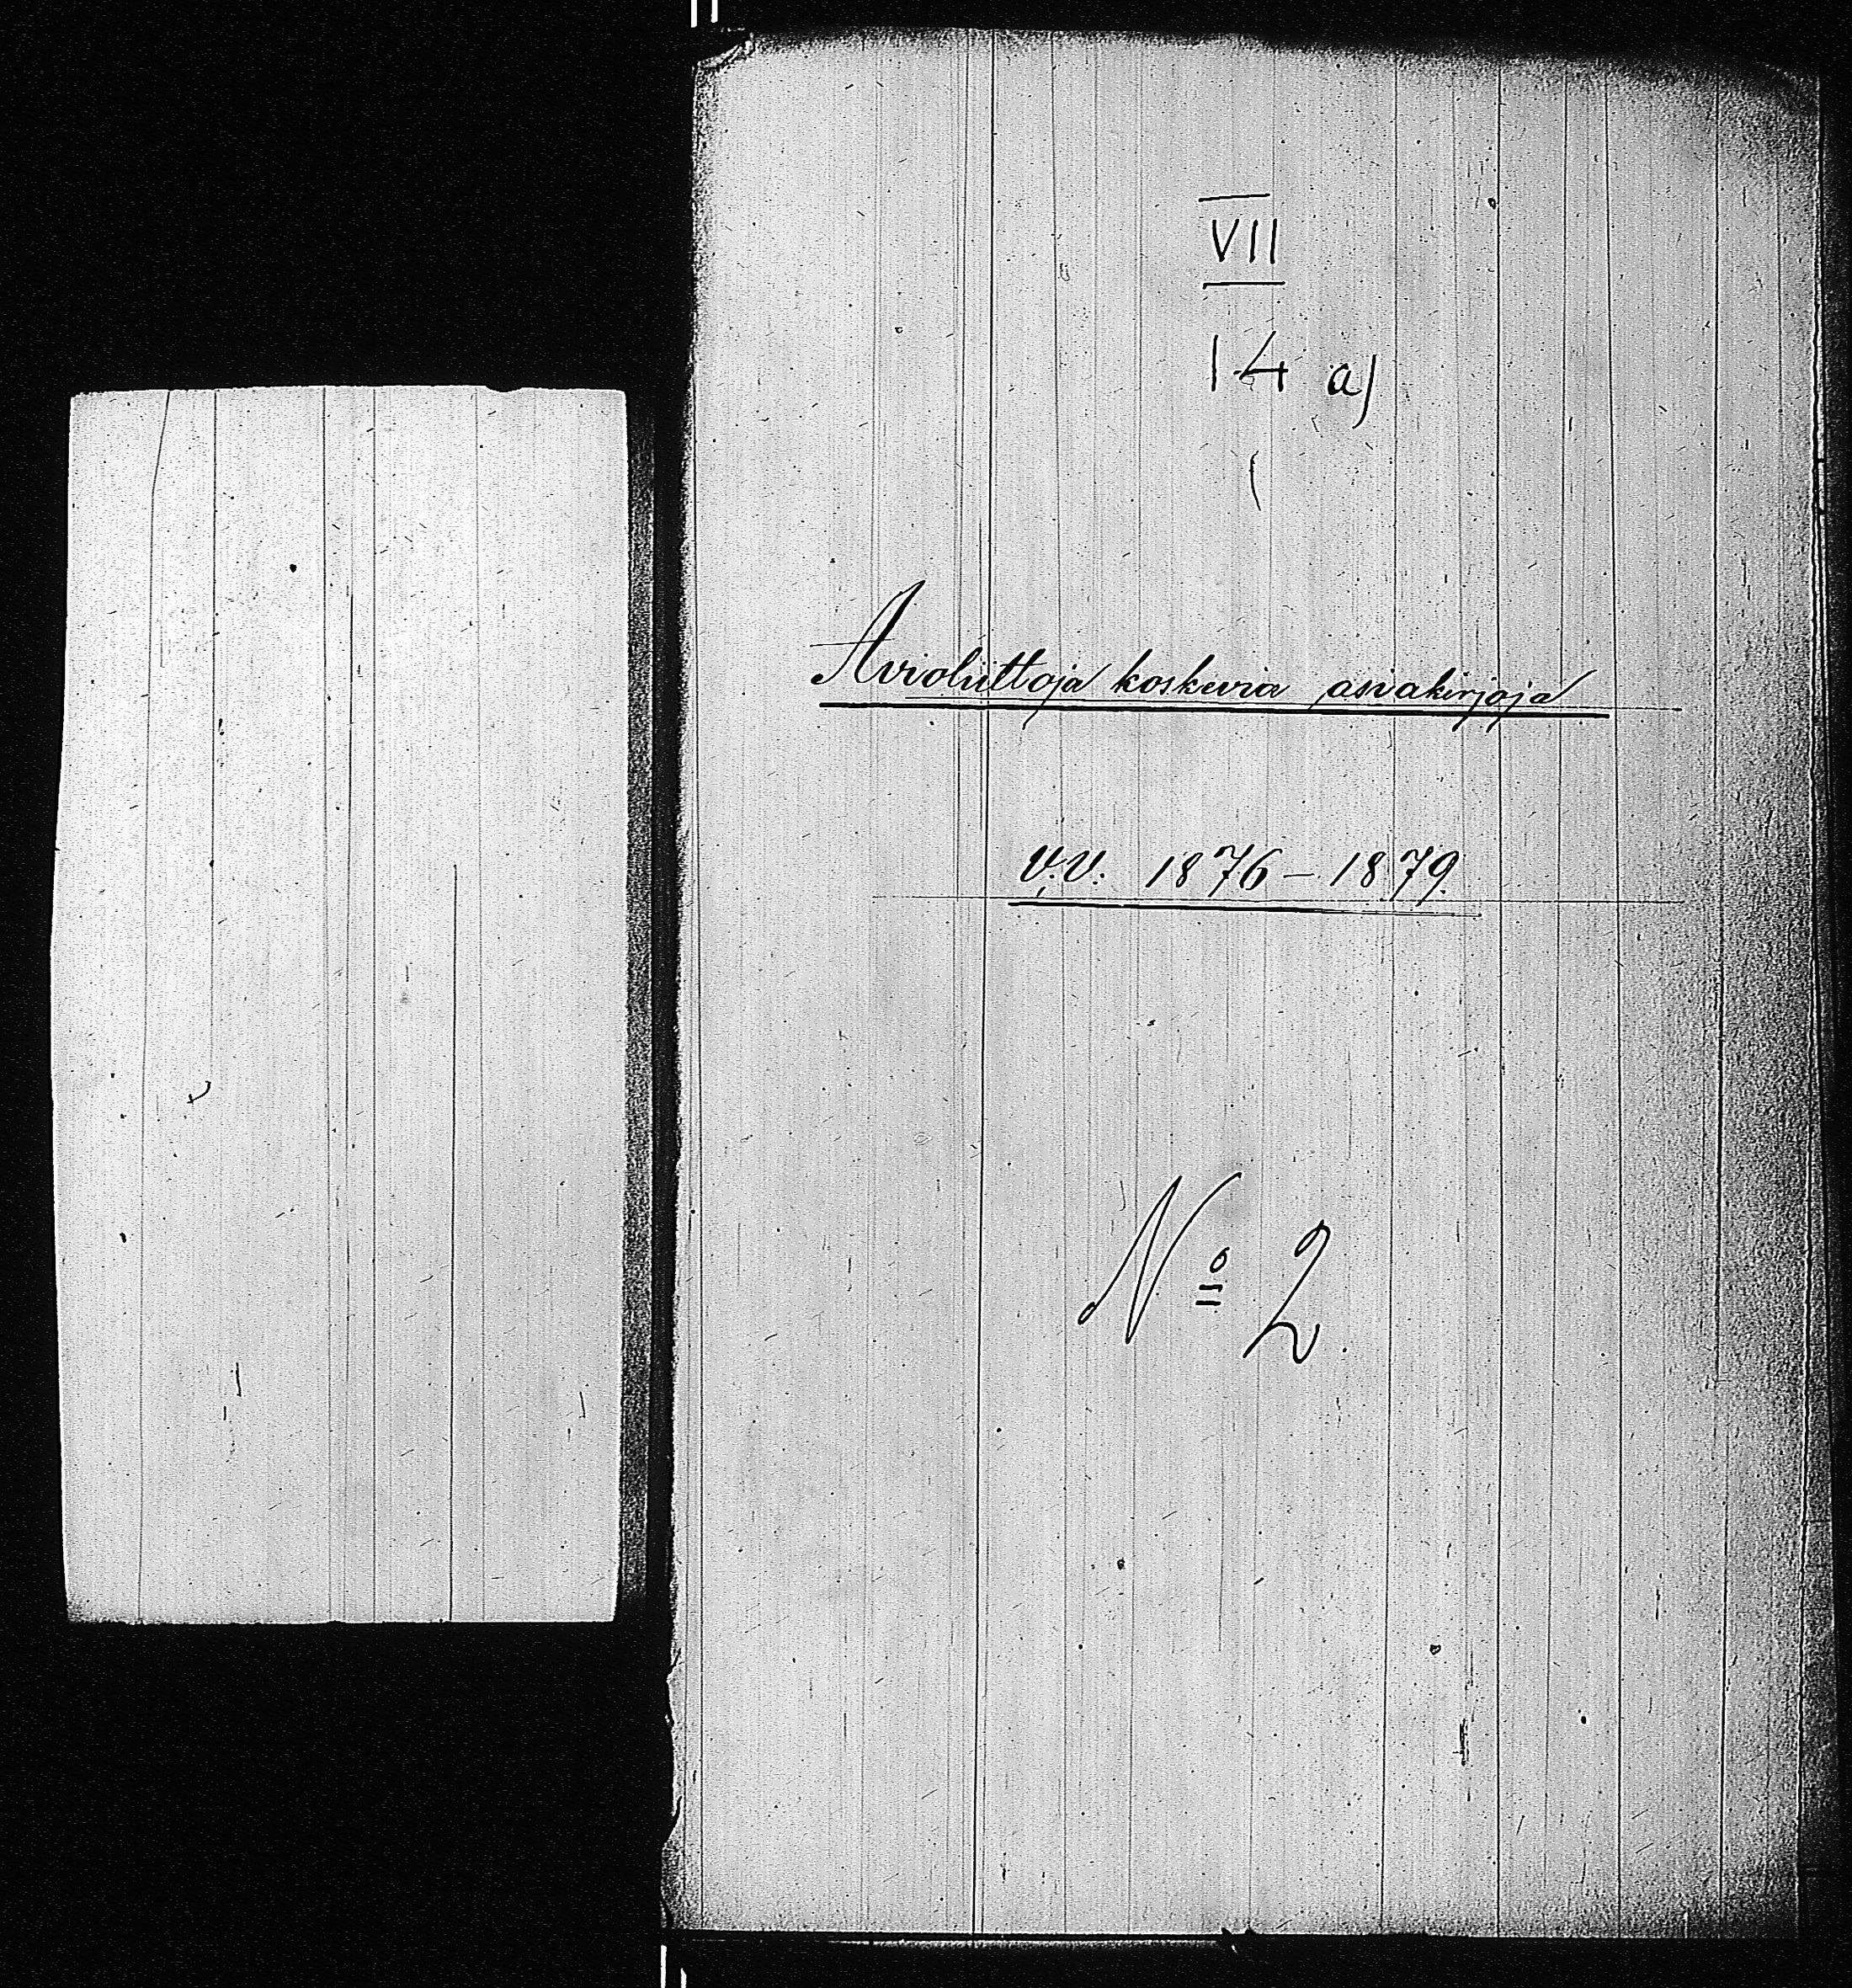 VII
14 a)
Avioliittoja koskevia asiakirjoja
v.v. 1876–1879.
Nº 2.